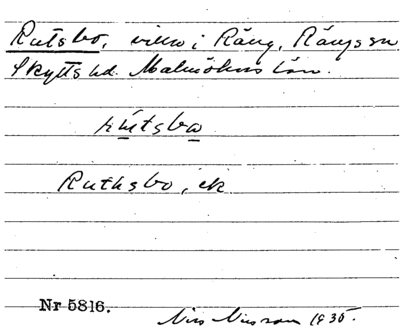 Rutsbo, villa i Räng, Rängs sn
Skytts hd. Malmöhus län.
rútsbo
Ruthsbo, ek
Nr 5816.
Nils Nilsson 1935.